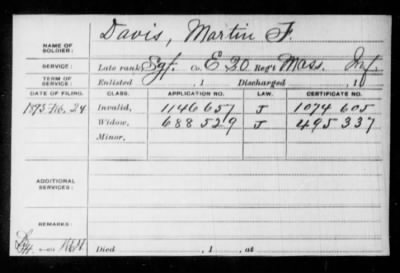 NAME OF SOLDIER: Davis, Martin F.
SERVICE: Late rank Sgt. Co. E-20 Reg't Mass. Inf.
TERM OF SERVICE: Enlisted , 1 Discharged , 1
DATE OF FILING. CLASS. APPLICATION NO. LAW. CERTIFICATE NO.
1893 24 Invalid, 1146657 J 1074605
Widow, 688529 J 495337
Minor,
ADDITIONAL SERVICES:
REMARKS:
Died , 1 , at